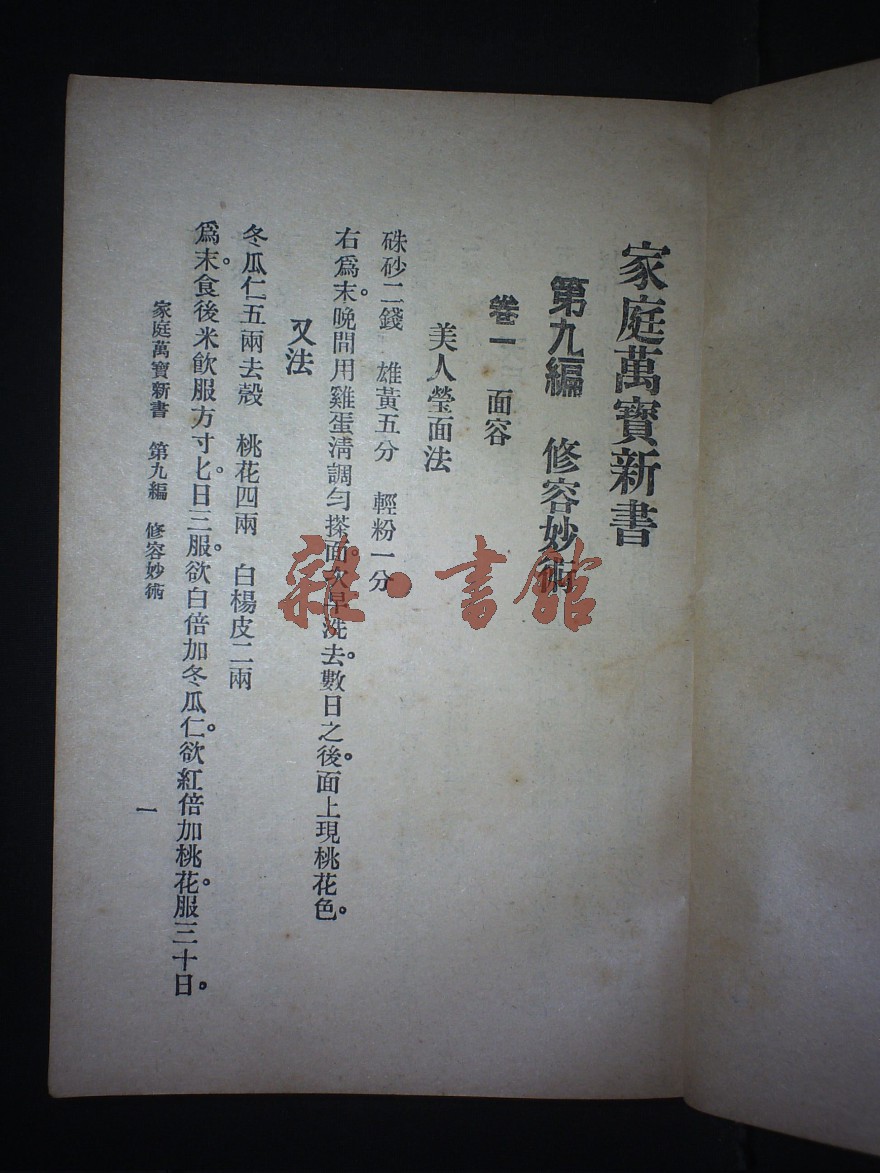 家庭萬寶新書
第九編　修容妙術
卷一　面容
美人瑩面法
硃砂二錢　雄黃五分　輕粉一分
右爲末。晚間用雞蛋淸調勻搽面。次早洗去。數日之後。面上現桃花色。
又法
冬瓜仁五兩去殼　桃花四兩　白楊皮二兩
爲末。食後米飮服方寸匕。日三服。欲白倍加冬瓜仁。欲紅倍加桃花。服三十日。
家庭萬寶新書　第九編　修容妙術
一
雜·書館